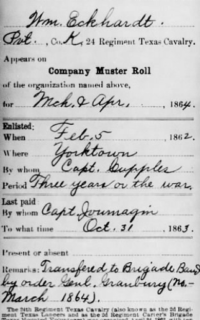 Wm. Eckhardt.
Pvt., Co. K, 24 Regiment Texas Cavalry.
Appears on
Company Muster Roll
of the organization named above,
for Mch & Apr., 1864.
Enlisted:
When Feb. 5, 1862
Where Yorktown
By whom Capt. Supples
Period Three years or the war
Last paid
By whom Capt
To what time Oct. 31, 1863.
Present or absent
Remarks: Transfered to Brigade Band
by order Genl. Granbury (No.
March 1864).
The 24th Regiment Texas Cavalry (also known as the 2d Regi-
ment Texas Lancers and as the 2d Regiment Carter's Brigade